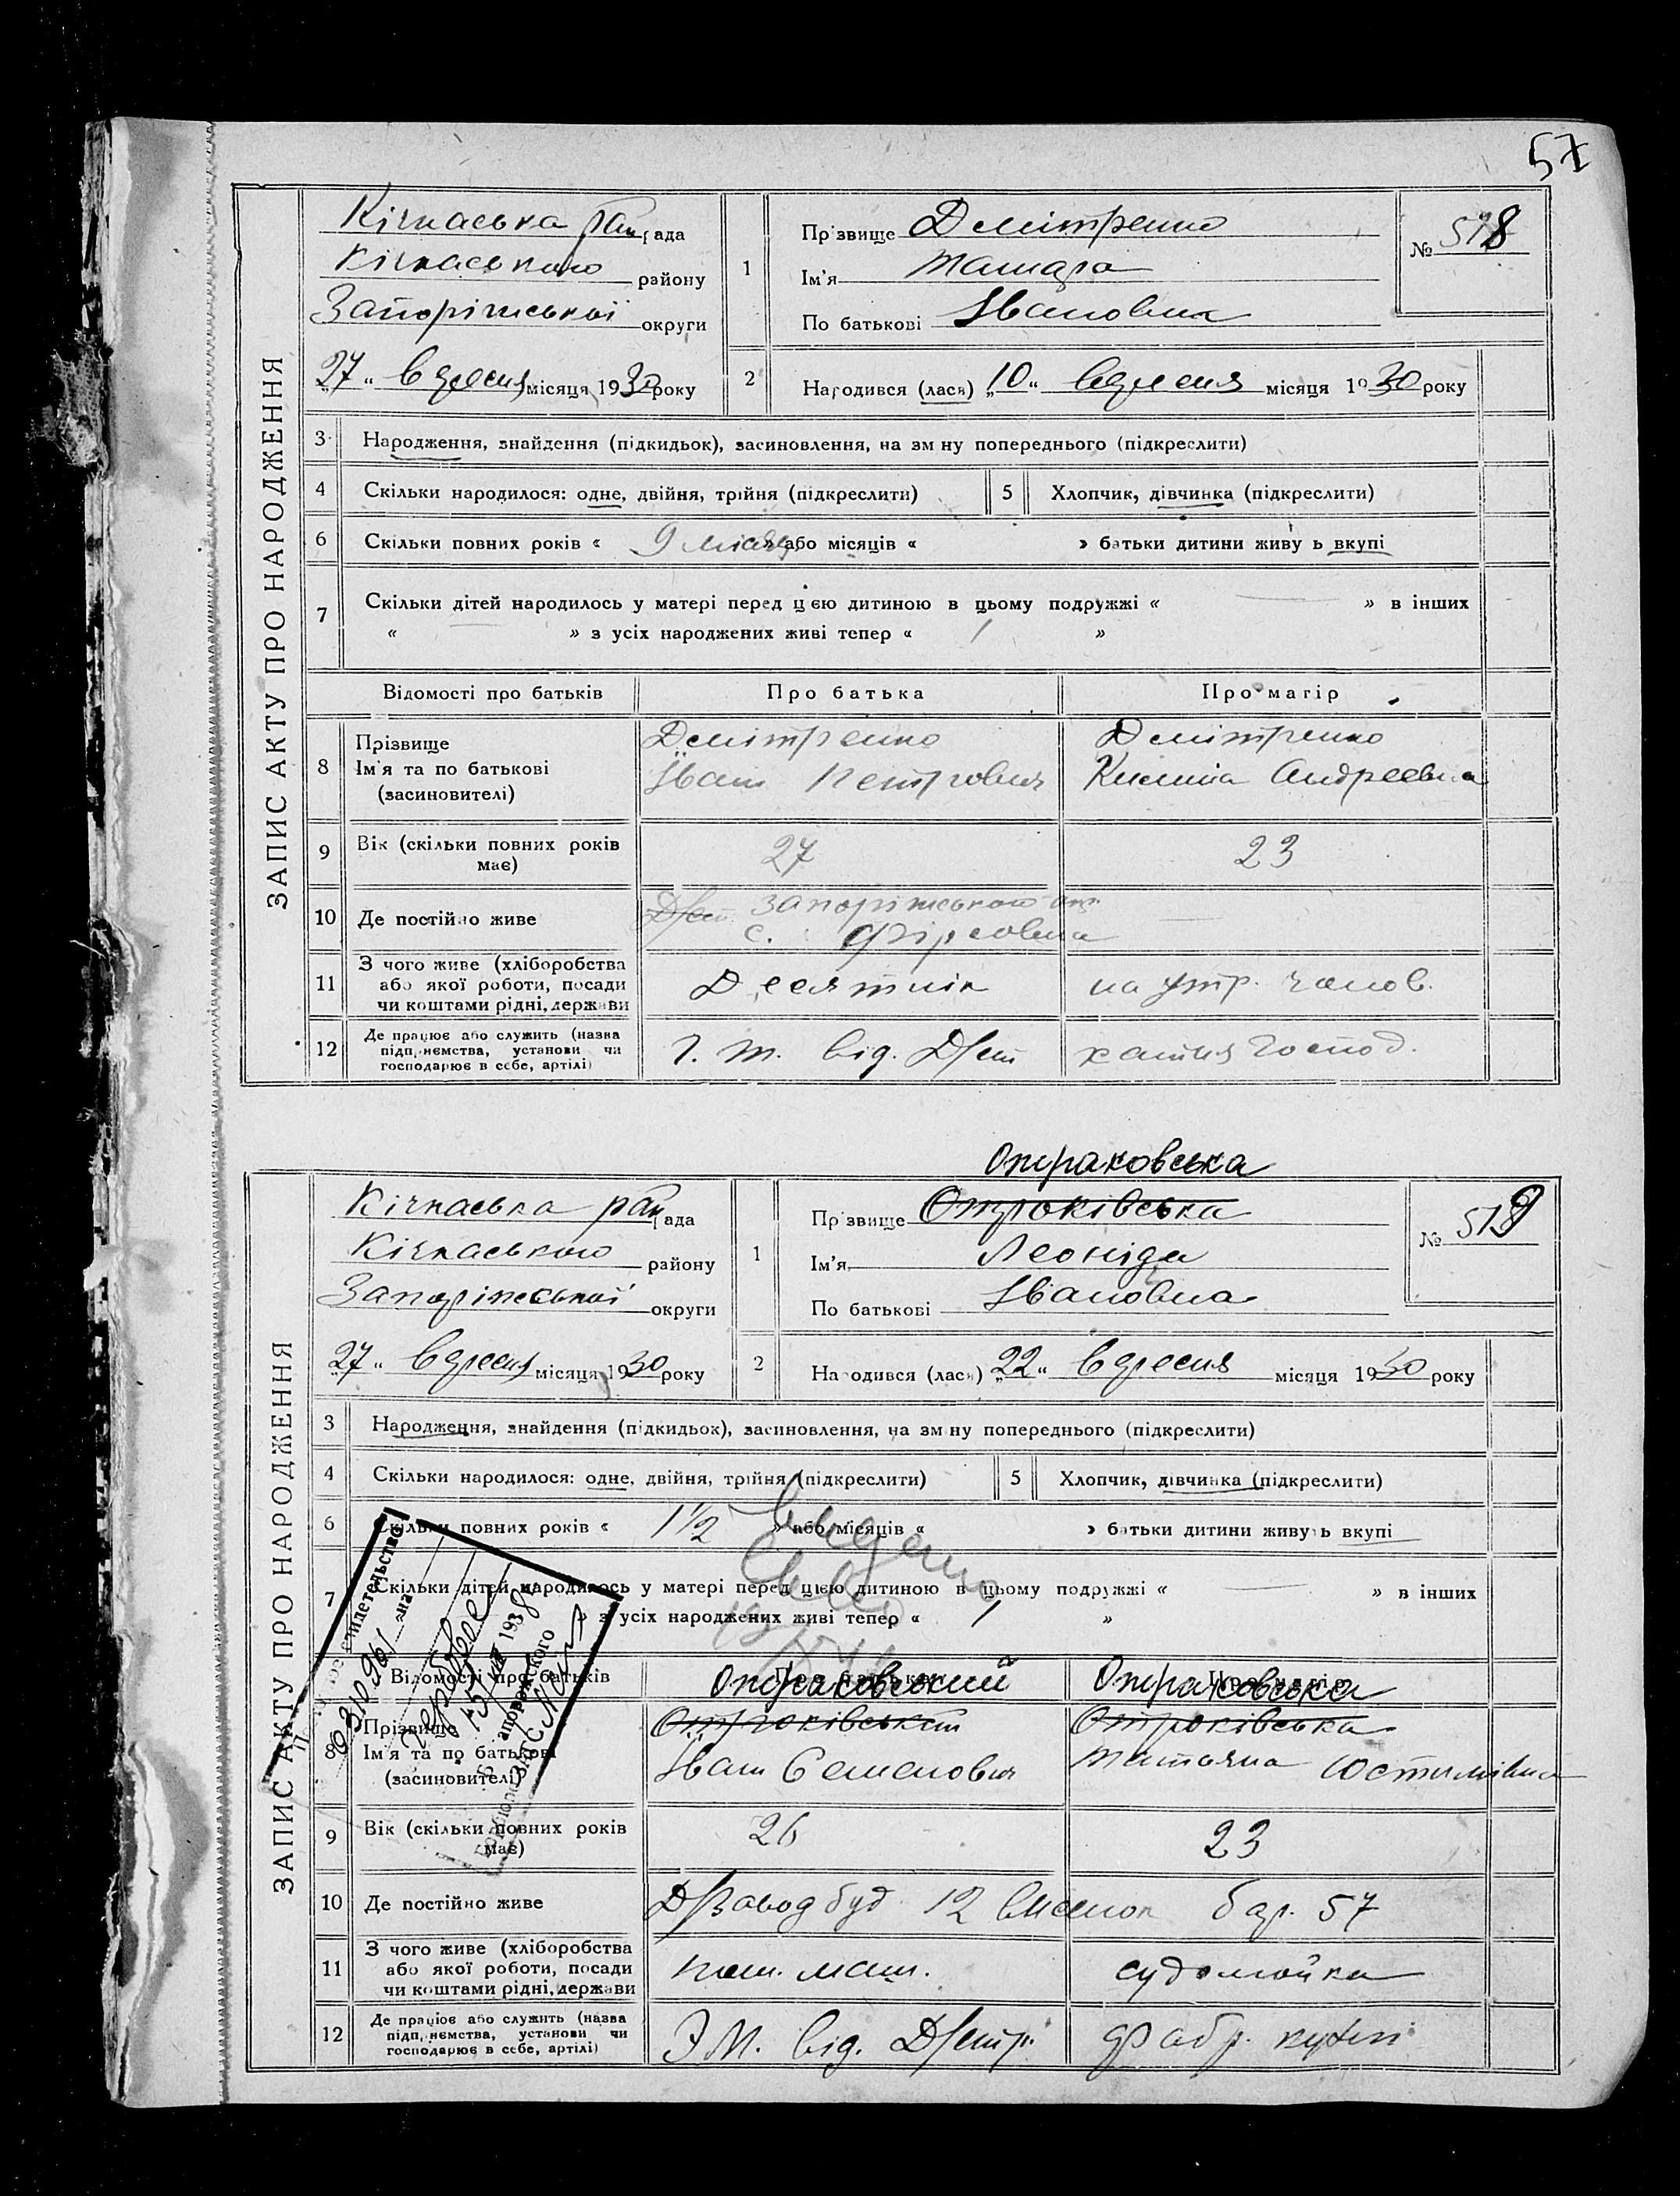 57
ЗАПИС АКТУ ПРО НАРОДЖЕННЯ
Кічкаська рай рада
Кічкаського району
Запоріжської округи
27 " вересня місяця 1930 року
1 Прізвище Дмітренко
Ім'я Тамара
По батькові Івановна
№ 518
2 Народився (лася) „10" вересня місяця 1930 року
3 Народження, знайдення (підкидьок), засиновлення, на зміну попереднього (підкреслити)
4 Скільки народилося: одне, двійня, трійня (підкреслити)
5 Хлопчик, дівчинка (підкреслити)
6 Скільки повних років « 9 місяц » або місяців « » батьки дитини живуть вкупі
7 Скільки дітей народилось у матері перед цією дитиною в цьому подружжі « — » в інших
« — » з усіх народжених живі тепер « 1 »
Відомості про батьків Про батька Про матір
8 Прізвище Дмітренко Дмітренко
Ім'я та по батькові Іван Петрович Андреевна
(засиновителі)
9 Вік (скільки повних років має) 27 23
10 Де постійно живе Запоріжського окр. —
с.
11 З чого живе (хліборобства або якої роботи, посади чи коштами рідні, держави Десятнік на утр. чолов.
12 Де працює або служить (назва підприємства, установи чи господарює в себе, артілі) від. хатня господ.
ЗАПИС АКТУ ПРО НАРОДЖЕННЯ
Отраковська
Кічкаська рай рада
Кічкаського району
Запоріжської округи
27 " вересня місяця 1930 року
1 Прізвище Отроківська
Ім'я Леоніда
По батькові Івановна
№ 519
2 Народився (лася) „22" вересня місяця 1930 року
3 Народження, знайдення (підкидьок), засиновлення, на зміну попереднього (підкреслити)
4 Скільки народилося: одне, двійня, трійня (підкреслити)
5 Хлопчик, дівчинка (підкреслити)
6 Скільки повних років « 1½ » або місяців « » батьки дитини живуть вкупі
7 Скільки дітей народилось у матері перед цією дитиною в цьому подружжі « — » в інших
» з усіх народжених живі тепер « 1 »
Відомості про батьків Про батька Про матір
Отраковський Отраковська
8 Прізвище Отроківський Отроківська
Ім'я та по батькові Іван Семенович Татьяна Юстимівна
(засиновителі)
9 Вік (скільки повних років має) 26 23
10 Де постійно живе Д/Заводбуд 12 бар. 57
11 З чого живе (хліборобства або якої роботи, посади чи коштами рідні, держави пом. маш. судомойка
12 Де працює або служить (назва підприємства, установи чи господарює в себе, артілі) від. Фабр. кухні